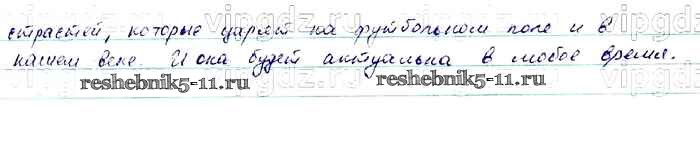 страстей, которые царят на футбольном поле и в
нашем веке. И она будет актуальна в любое время.
reshebnik5-11.ru reshebnik5-11.ru